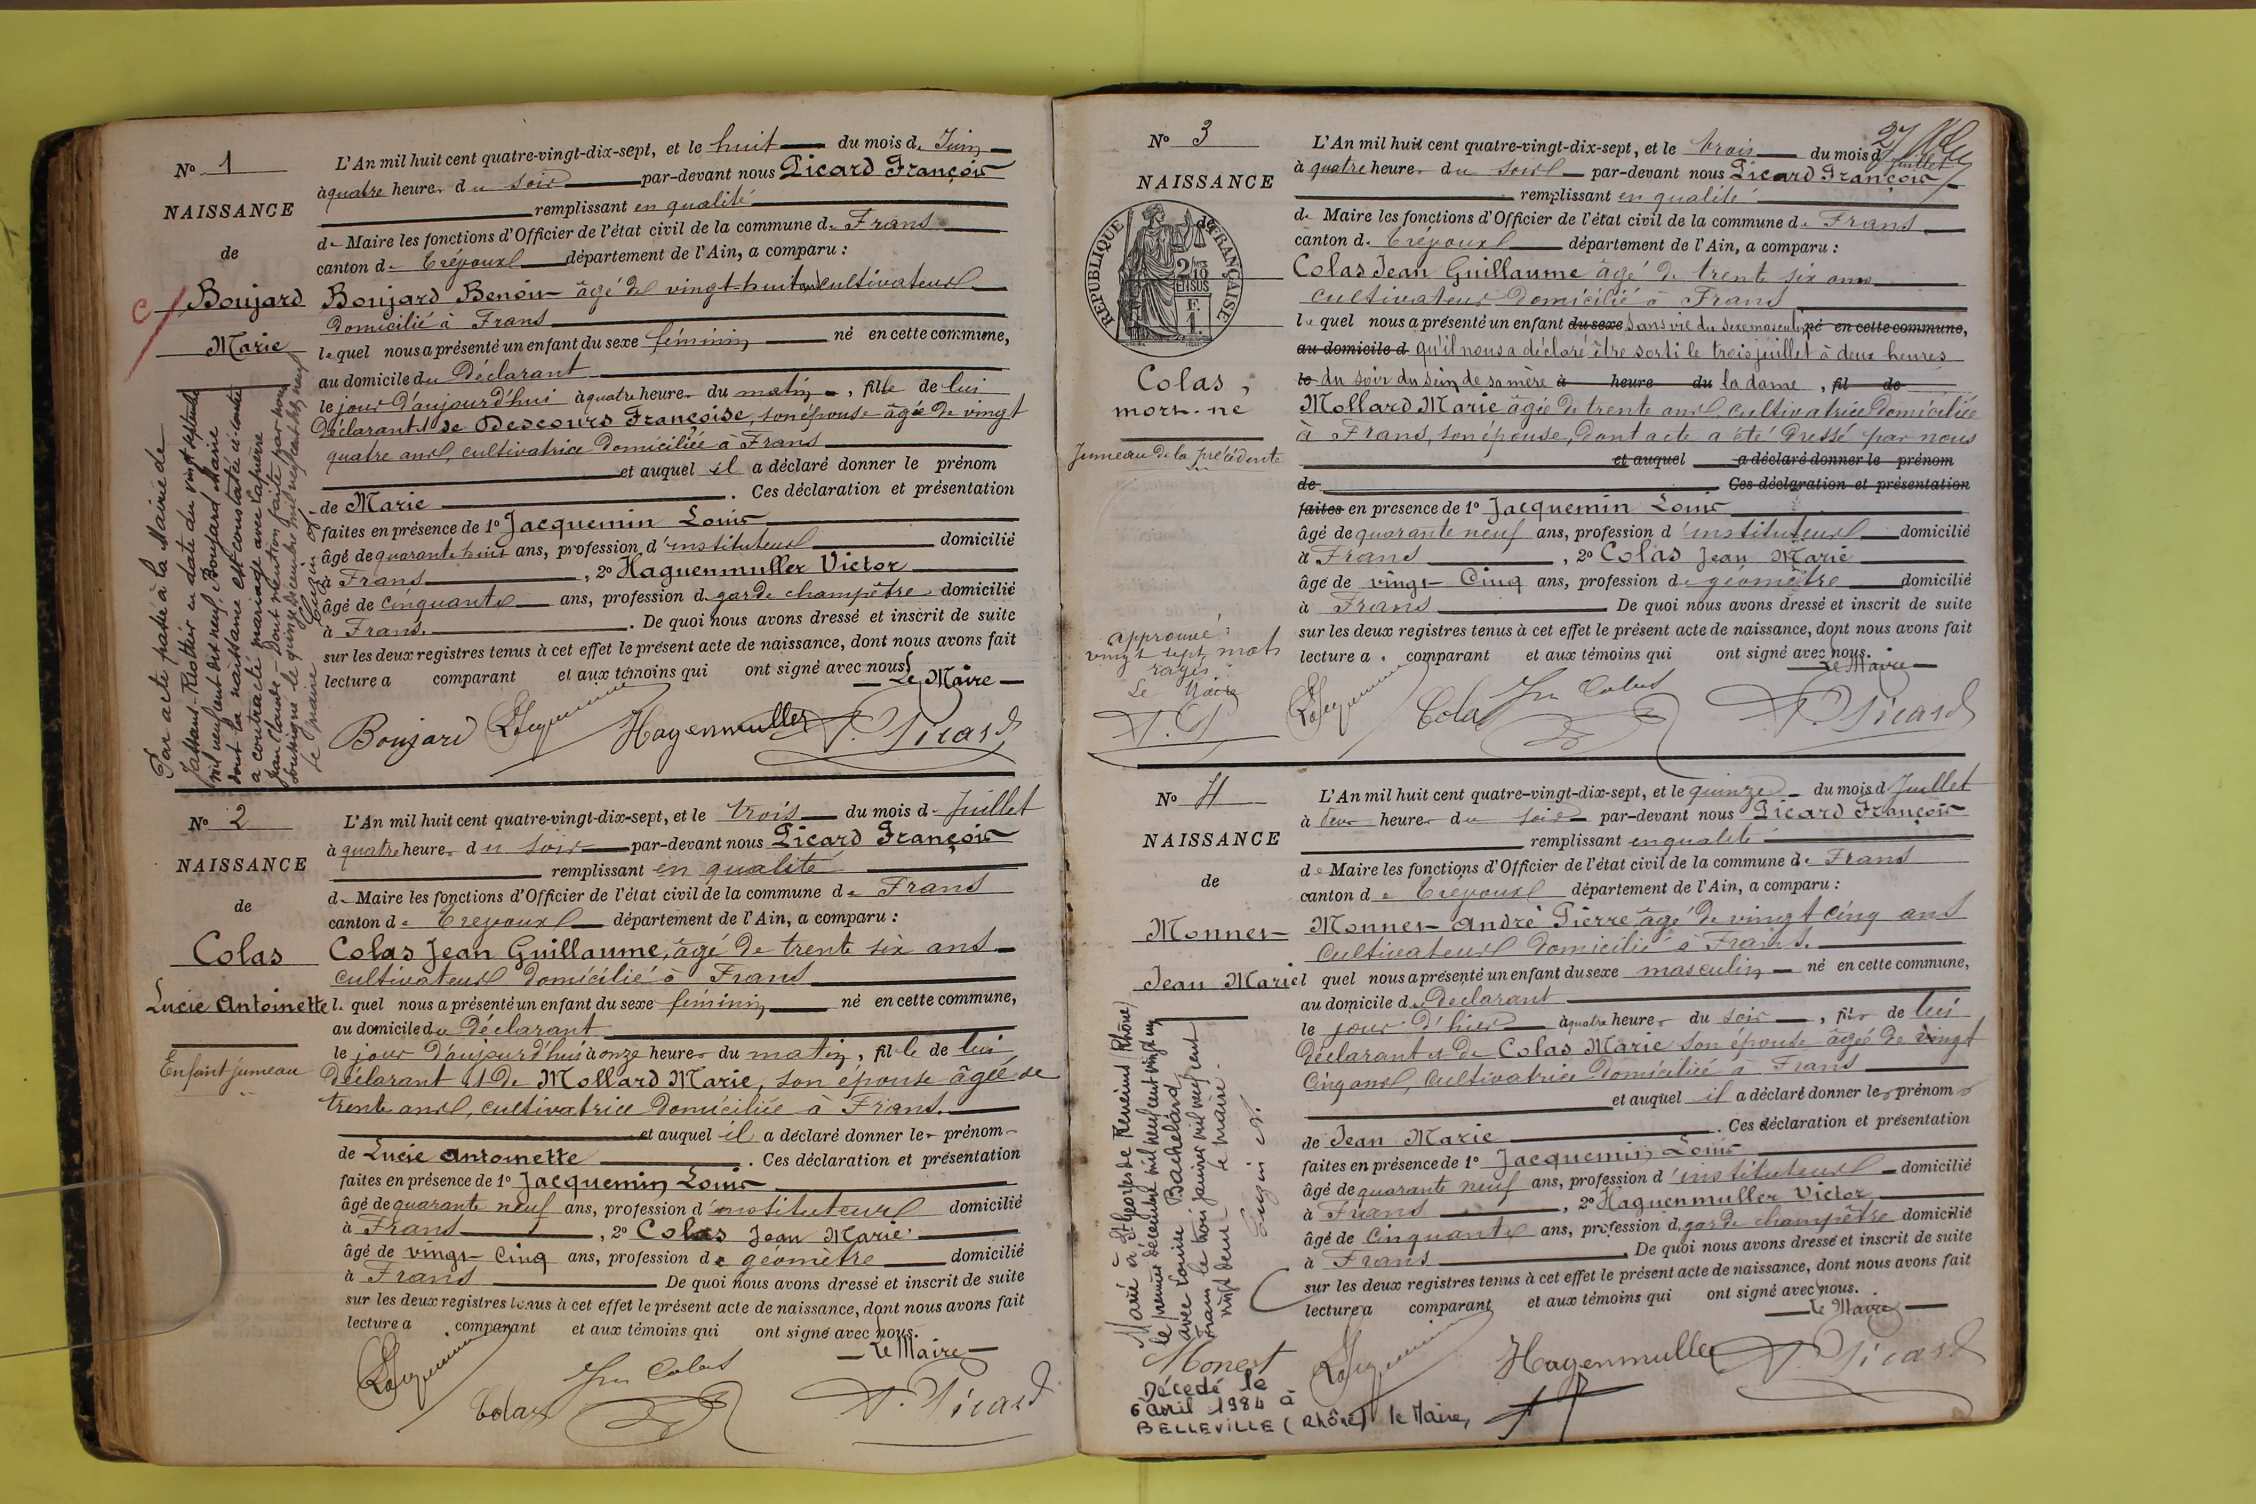 N° 1
NAISSANCE
de
Boujard
Marie
L'An mil huit cent quatre-vingt-dix-sept, et le huit du mois de Juin
à quatre heures du soir par-devant nous Picard François
remplissant en qualité
de Maire les fonctions d'Officier de l'état civil de la commune de Frans
canton de Trévoux département de l'Ain, a comparu :
Boujard Benoît âgé de vingt-huit ans cultivateur
domicilié à Frans
lequel nous a présenté un enfant du sexe féminin né en cette commune,
au domicile du Déclarant
le jour d'aujourd'hui à quatre heures du matin, fille de lui
déclarant et de Descours Françoise, son épouse âgée de vingt
quatre ans, cultivatrice domiciliée à Frans
et auquel il a déclaré donner le prénom
de Marie . Ces déclaration et présentation
faites en présence de 1° Jacquemin Louis
âgé de quarante huit ans, profession d'instituteur domicilié
à Frans , 2° Haguenmuller Victor
âgé de cinquante ans, profession de garde champêtre domicilié
à Frans. . De quoi nous avons dressé et inscrit de suite
sur les deux registres tenus à cet effet le présent acte de naissance, dont nous avons fait
lecture a comparant et aux témoins qui ont signé avec nous.
Le Maire
Boujard LJacquemin Hagenmuller F. Picard
Par acte passé à la Mairie de
Jassans-Riottier en date du vingt septembre
mil neuf cent dix neuf, Boujard Marie
dont la naissance est constatée ci-contre
a contracté mariage avec Lapierre
Jean Claude - Dont mention faite par nous
soussigné le quinze décembre mil neuf cent dix neuf
Le Maire
N° 2
NAISSANCE
de
Colas
Lucie Antoinette
Enfant jumeau
L'An mil huit cent quatre-vingt-dix-sept, et le trois du mois de Juillet
à quatre heures du soir par-devant nous Picard François
remplissant en qualité
de Maire les fonctions d'Officier de l'état civil de la commune de Frans
canton de Trévoux département de l'Ain, a comparu :
Colas Jean Guillaume, âgé de trente six ans
cultivateur domicilié à Frans
lequel nous a présenté un enfant du sexe féminin né en cette commune,
au domicile du Déclarant
le jour d'aujourd'hui à onze heures du matin, fille de lui
déclarant et de Mollard Marie, son épouse âgée de
trente ans, cultivatrice domiciliée à Frans.
et auquel il a déclaré donner les prénom
de Lucie Antoinette . Ces déclaration et présentation
faites en présence de 1° Jacquemin Louis
âgé de quarante neuf ans, profession d'instituteur domicilié
à Frans , 2° Colas Jean Marie
âgé de vingt cinq ans, profession de géomètre domicilié
à Frans De quoi nous avons dressé et inscrit de suite
sur les deux registres tenus à cet effet le présent acte de naissance, dont nous avons fait
lecture a comparant et aux témoins qui ont signé avec nous.
Le Maire
LJacquemin Colas Jn Colas F. Picard
N° 3
NAISSANCE
RÉPUBLIQUE FRANÇAISE
Colas,
mort-né
Jumeau de la précédente
approuvé :
vingt sept mots
rayés
Le Maire
F. P
L'An mil huit cent quatre-vingt-dix-sept, et le trois du mois de juillet
à quatre heures du soir par-devant nous Picard François
remplissant en qualité
de Maire les fonctions d'Officier de l'état civil de la commune de Frans
canton de Trévoux département de l'Ain, a comparu :
Colas Jean Guillaume âgé de trente six ans
cultivateur domicilié à Frans
lequel nous a présenté un enfant du sexe sans vie du sexe masculin né en cette commune,
au domicile d qu'il nous a déclaré être sorti le trois juillet à deux heures
le du soir du sein de sa mère à heure du la dame , fil de
Mollard Marie âgée de trente ans, cultivatrice domiciliée
à Frans, son épouse, dont acte a été dressé par nous
et auquel a déclaré donner le prénom
de Ces déclaration et présentation
faites en présence de 1° Jacquemin Louis
âgé de quarante neuf ans, profession d'instituteur domicilié
à Frans , 2° Colas Jean Marie
âgé de vingt cinq ans, profession de géomètre domicilié
à Frans . De quoi nous avons dressé et inscrit de suite
sur les deux registres tenus à cet effet le présent acte de naissance, dont nous avons fait
lecture a comparant et aux témoins qui ont signé avec nous.
Le Maire
LJacquemin Colas Jn Colas F. Picard
N° 4
NAISSANCE
de
Monner
Jean Marie
L'An mil huit cent quatre-vingt-dix-sept, et le quinze du mois d Juillet
à deux heures du soir par-devant nous Picard François
remplissant en qualité
de Maire les fonctions d'Officier de l'état civil de la commune de Frans
canton de Trévoux département de l'Ain, a comparu :
Monner André Pierre âgé de vingt cinq ans
cultivateur domicilié à Frans.
lequel nous a présenté un enfant du sexe masculin né en cette commune,
au domicile du Déclarant
le jour d'hier à quatre heures du soir , fils de lui
déclarant et de Colas Marie son épouse âgée de vingt
cinq ans, cultivatrice domiciliée à Frans
et auquel il a déclaré donner les prénoms
de Jean Marie . Ces déclaration et présentation
faites en présence de 1° Jacquemin Louis
âgé de quarante neuf ans, profession d'instituteur domicilié
à Frans , 2° Haguenmuller Victor
âgé de cinquante ans, profession de garde champêtre domicilié
à Frans . De quoi nous avons dressé et inscrit de suite
sur les deux registres tenus à cet effet le présent acte de naissance, dont nous avons fait
lecture a comparant et aux témoins qui ont signé avec nous.
Le Maire
Monert LJacquemin Hagenmuller F. Picard
Marié à St Georges de Reneins (Rhône)
le premier décembre mil neuf cent vingt un
avec Louise Bachelard
Frans le trois janvier mil neuf cent
vingt deux - Le Maire.
Décédé le
6 avril 1984 à
BELLEVILLE (Rhône) le Maire,